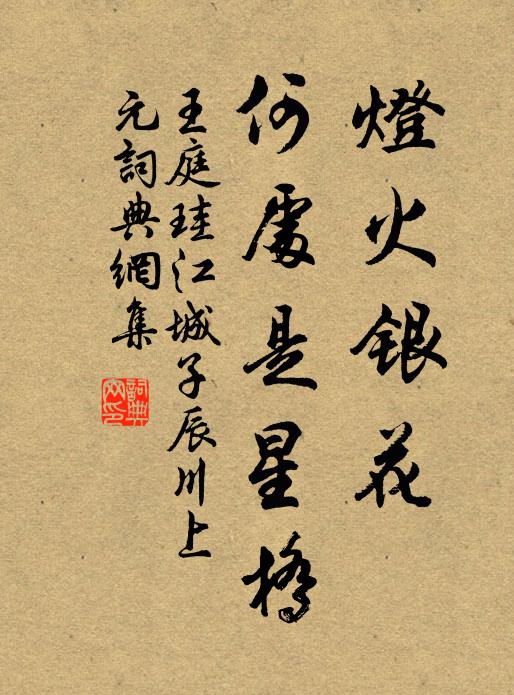 燈火銀花
何處是星橋
王庭珪江城子辰川上
元詞典網集
詞典網印